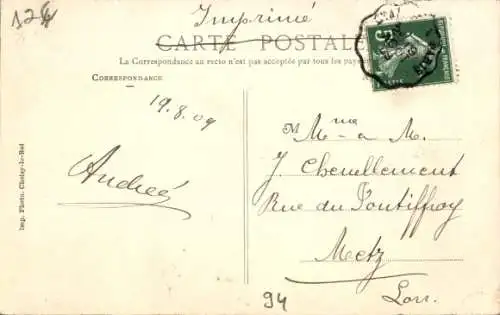 Imprimé
CARTE POSTALE
La Correspondance au recto n'est pas acceptée par tous les pays
CORRESPONDANCE
19.8.09
Andrée
Imp. Photo. Choisy-le-Roi
M Mme & M.
J. Chenillement
Rue du Pontiffroy
Metz
Lorr.
94